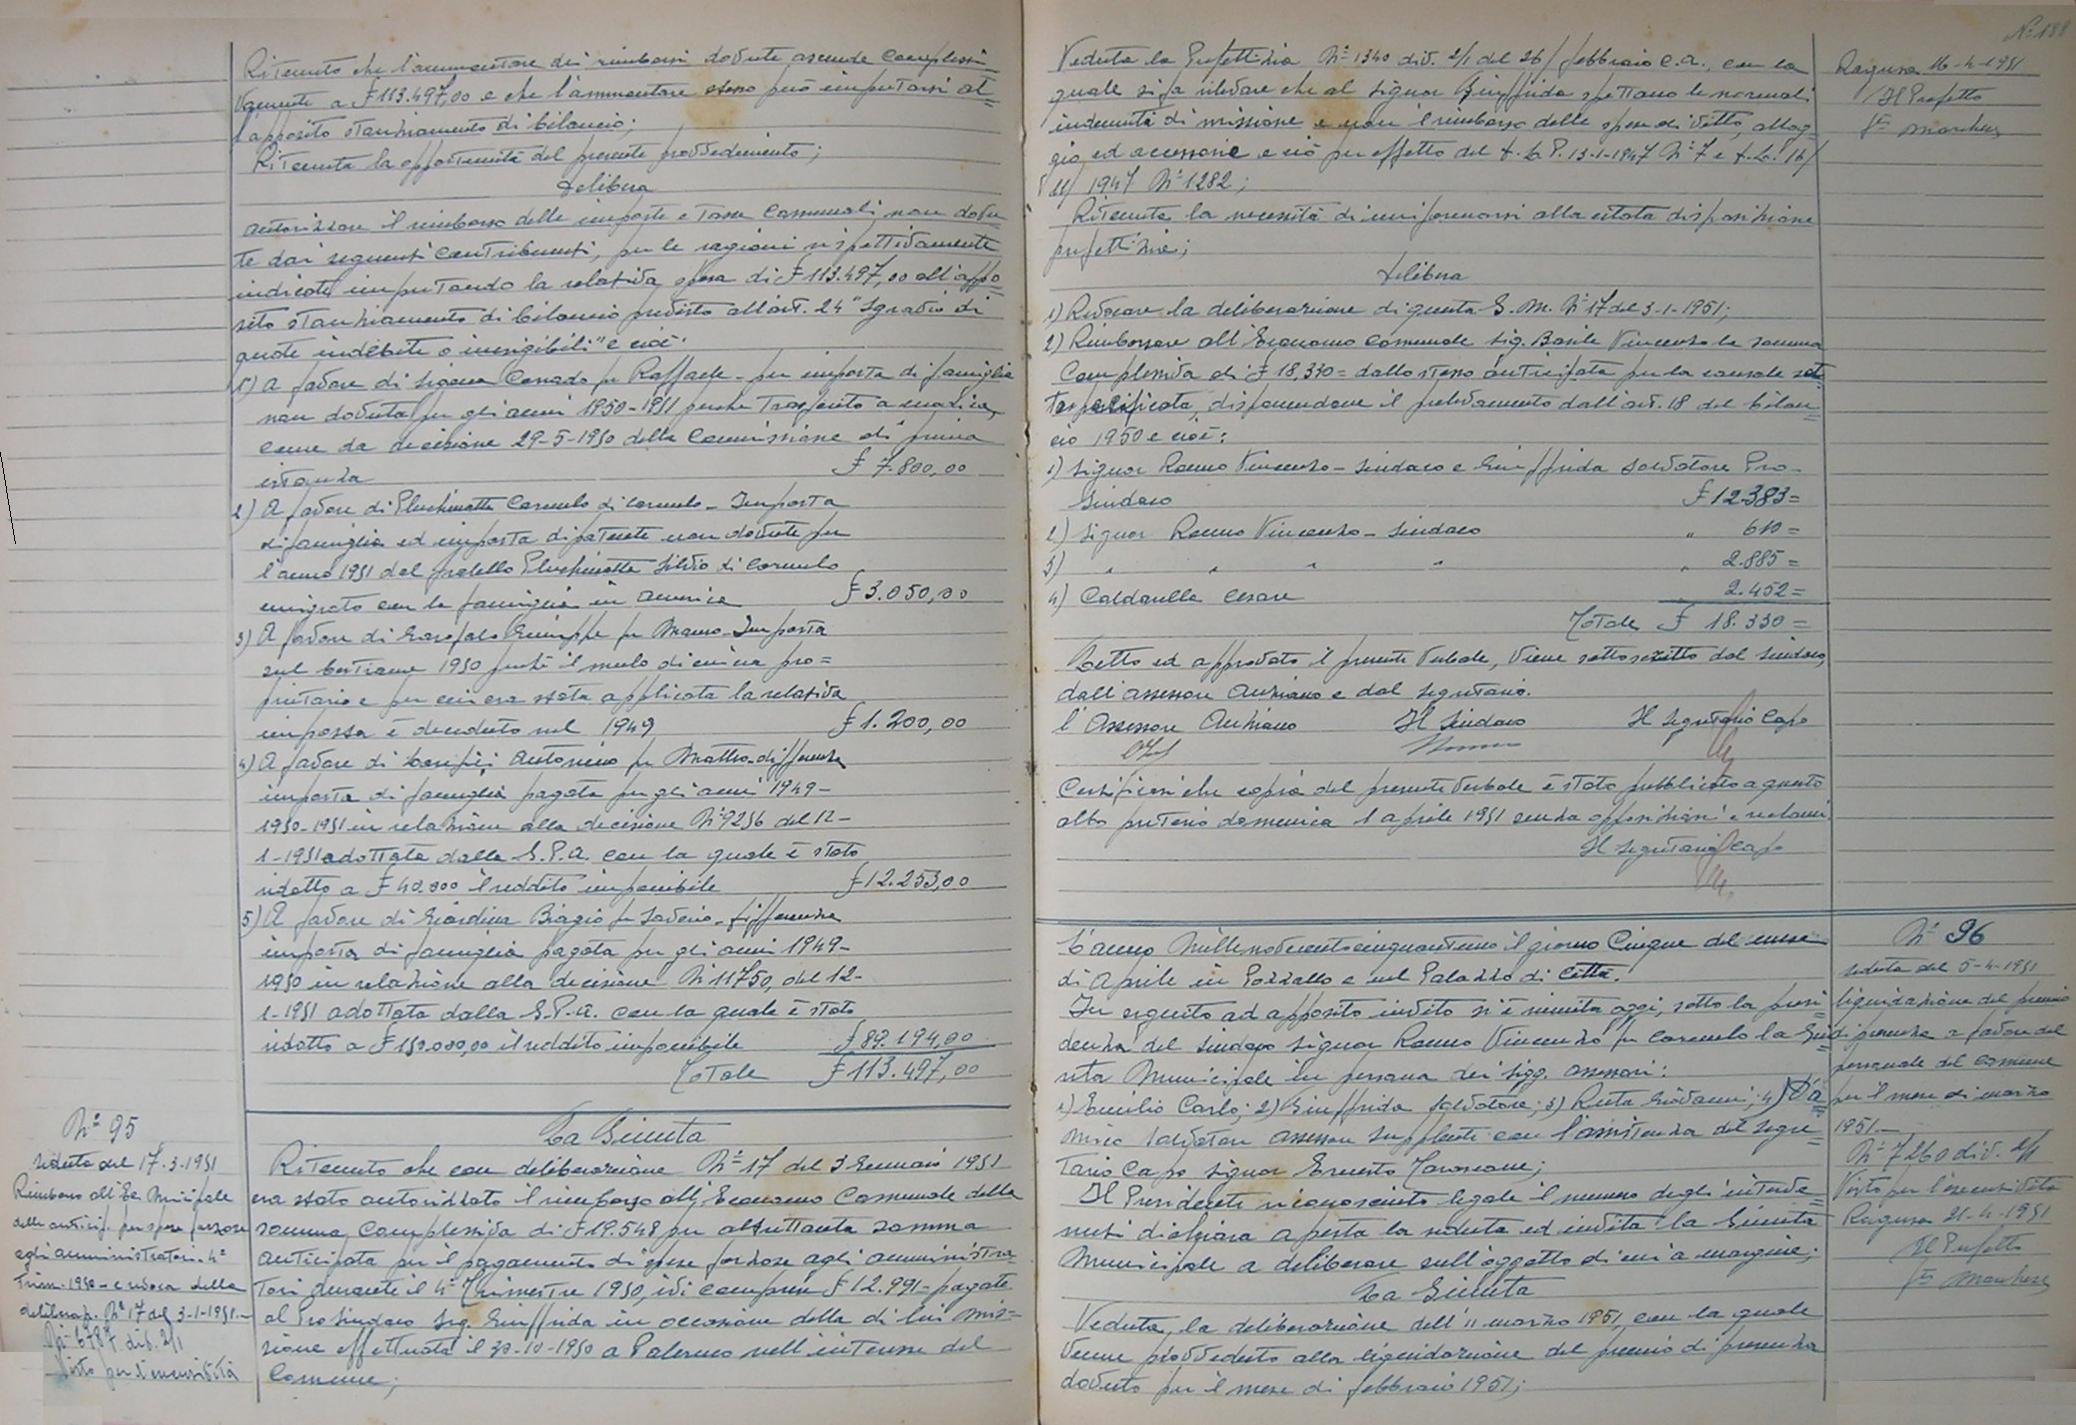 Ritenuto che l'ammontare dei rimborsi dovute ascende complessi
vamente a £ 113.497,00 e che l'ammontare stesso può imputarsi al=
l'apposito stanziamento di bilancio;
Ritenuta la opportunità del presente provvedimento;
delibera
autorizzare il rimborso delle imposte e tasse comunali non dovu
te dai seguenti contribuenti, per le ragioni rispettivamente
indicate imputando la relativa spesa di £ 113.497,00 all'appo=
sito stanziamento di bilancio previsto all'art. 24 "Sgravio di
quote indebite o inesigibili" e cioè:
1) A favore di Corrado fu Raffaele - per imposta di famiglia
non dovuta per gli anni 1950-1951 perché trasferito a
come da decisione 29-5-1950 della Commissione di prima
istanza £ 7.800,00
2) A favore di Pluchinotta Carmelo di Carmelo - Imposta
di famiglia ed imposta di patente non dovute per
l'anno 1951 dal fratello Pluchinotta Silvio di Carmelo
emigrato con la famiglia in America £ 3.050,00
3) A favore di Garofalo Giuseppe fu - Imposta
sul bestiame 1950 perché il mulo di cui era pro=
prietario e per cui era stata applicata la relativa
imposta è deceduto nel 1949 £ 1.200,00
4) A favore di Antonino fu Matteo - differenza
imposta di famiglia pagata per gli anni 1949-
1950-1951 in relazione alla decisione N° 9256 del 12-
1-1951 adottata dalla G.P.A. con la quale è stato
ridotto a £ 40.000 il reddito imponibile £ 12.253,00
5) A favore di Giardina Biagio fu Saverio - differenza
imposta di famiglia pagata per gli anni 1949-
1950 in relazione alla decisione N° 11750, del 12-
1-1951 adottata dalla G.P.A. con la quale è stato
ridotto a £ 150.000,00 il reddito imponibile £ 89.194,00
Totale £ 113.497,00
N° 95
seduta del 17-3-1951
Rimborso all'Ec. Municipale
delle anticip. per spese forzose
agli amministratori - 4°
Trim. 1950 - e revoca della
deliberaz. N° 17 del 3-1-1951.-
N° 6787 div. 2/1
Visto per l'esecutività
La Giunta
Ritenuto che con deliberazione N° 17 del 3 Gennaio 1951
era stato autorizzato il rimborso all'Economo Comunale della
somma complessiva di £ 19.548 per altrettanta somma
anticipata per il pagamento di spese forzose agli amministra
tori durante il 4° Trimestre 1950, ivi comprese £ 12.991 - pagate
al Prosindaco Sig. Giuffrida in occasione della di lui mis=
sione effettuata il 30-10-1950 a Palermo nell'interesse del
Comune;
N° 188
Veduta la Prefettizia N° 1340 div. 2/1 del 26/ febbraio c.a., con la
quale si fa rilevare che al Signor Giuffrida spettano le normali
indennità di missione e non il rimborso delle spese di vitto, allog
gio ed accessorie e ciò per effetto del d.L.P. 13-1-1947 N° 7 e d.L. 16/
11/ 1947 N° 1282;
Ritenuta la necessità di uniformarsi alla citata disposizione
prefettizia;
delibera
1) Revocare la deliberazione di questa G.M. N° 17 del 3-1-1951;
2) Rimborsare all'Economo Comunale Sig. Basile Vincenzo la somma
complessiva di £ 18.330 = dallo stesso anticipata per la causale sot
to specificata, disponendone il prelevamento dall'art. 18 del bilan=
cio 1950 e cioè:
1) Signor Romeo Vincenzo - Sindaco e Giuffrida Salvatore Pro-
Sindaco £ 12.383 =
2) Signor Romeo Vincenzo - Sindaco " 610 =
3) " " " " " 2.885 =
4) Caldarella Cesare 2.452 =
Totale £ 18.330 =
Letto ed approvato il presente Verbale, viene sottoscritto dal Sindaco,
dall'assessore Anziano e dal Segretario.
l'Assessore Anziano Il Sindaco Il Segretario Capo
Certificasi che copia del presente Verbale è stata pubblicata a questo
albo pretorio domenica 1 aprile 1951 senza opposizioni e reclami.
Il Segretario Capo
Ragusa 16-4-1951
Il Prefetto
L'anno Millenovecentocinquantuno il giorno Cinque del mese
di Aprile in Pozzallo e nel Palazzo di Città.
In seguito ad apposito invito si è riunita oggi, sotto la presi
denza del Sindaco Signor Romeo Vincenzo fu Carmelo la Giu=
nta Municipale in persona dei sigg. assessori:
1) Emilio Carlo; 2) Giuffrida Salvatore; 3) Ruta Giovanni; 4) D'A=
mico Salvatore assessore supplente con l'assistenza del Segre=
tario Capo Signor Ernesto;
Il Presidente riconosciuto legale il numero degli interve=
nuti dichiara aperta la seduta ed invita la Giunta
Municipale a deliberare sull'oggetto di cui a margine;
La Giunta
Veduta, la deliberazione dell'11 marzo 1951, con la quale
venne provveduto alla liquidazione del premio di presenza
dovuto per il mese di febbraio 1951;
N° 96
seduta del 5-4-1951
liquidazione del premio
di presenza a favore del
personale del Comune
per il mese di marzo
1951.-
N° 7260 div. 2/1
Visto per l'esecutività
Ragusa 21-4-1951
Il Prefetto